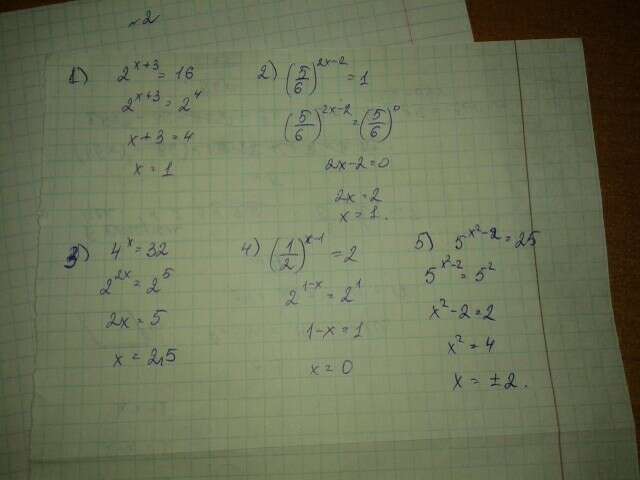 №2
1) 2^(x+3) = 16
2^(x+3) = 2^4
x+3 = 4
x = 1
2) (5/6)^(2x-2) = 1
(5/6)^(2x-2) = (5/6)^0
2x-2=0
2x = 2
x = 1.
3) 4^x = 32
2^(2x) = 2^5
2x = 5
x = 2,5
4) (1/2)^(x-1) = 2
2^(1-x) = 2^1
1-x = 1
x = 0
5) 5^(x²-2) = 25
5^(x²-2) = 5²
x²-2 = 2
x² = 4
x = ±2.